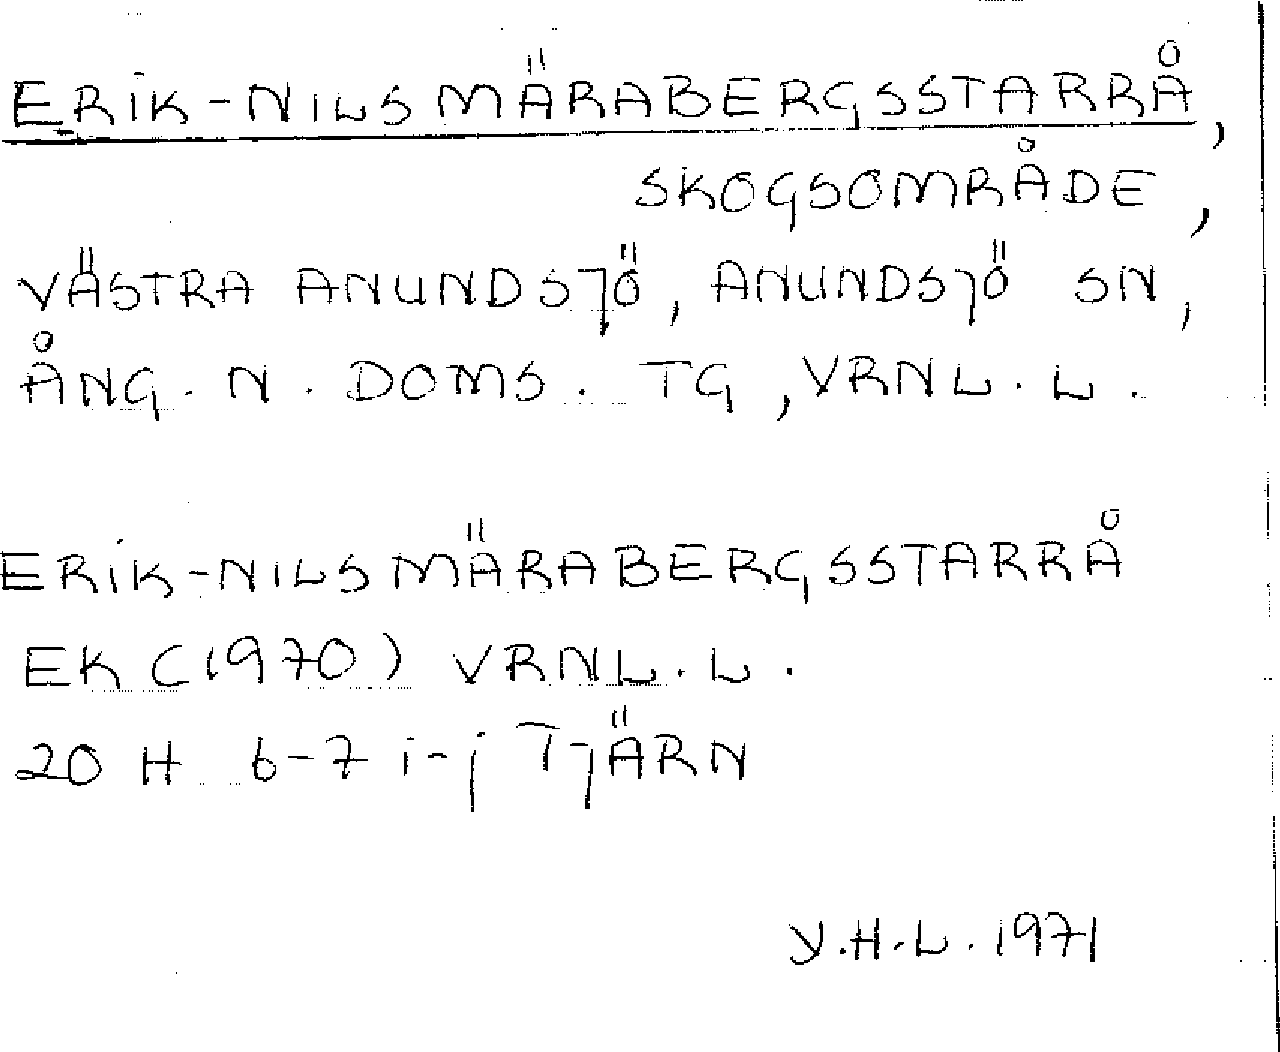 ERIK-NILSMÄRABERGSSTARRÅ,
SKOGSOMRÅDE,
VÄSTRA ANUNDSJÖ, ANUNDSJÖ SN,
ÅNG. N. DOMS. TG, VRNL. L.
ERIK-NILSMÄRABERGSSTARRÅ
EK (1970) VRNL. L.
20 H 6-7 i-j TJÄRN
Y.H.L. 1971